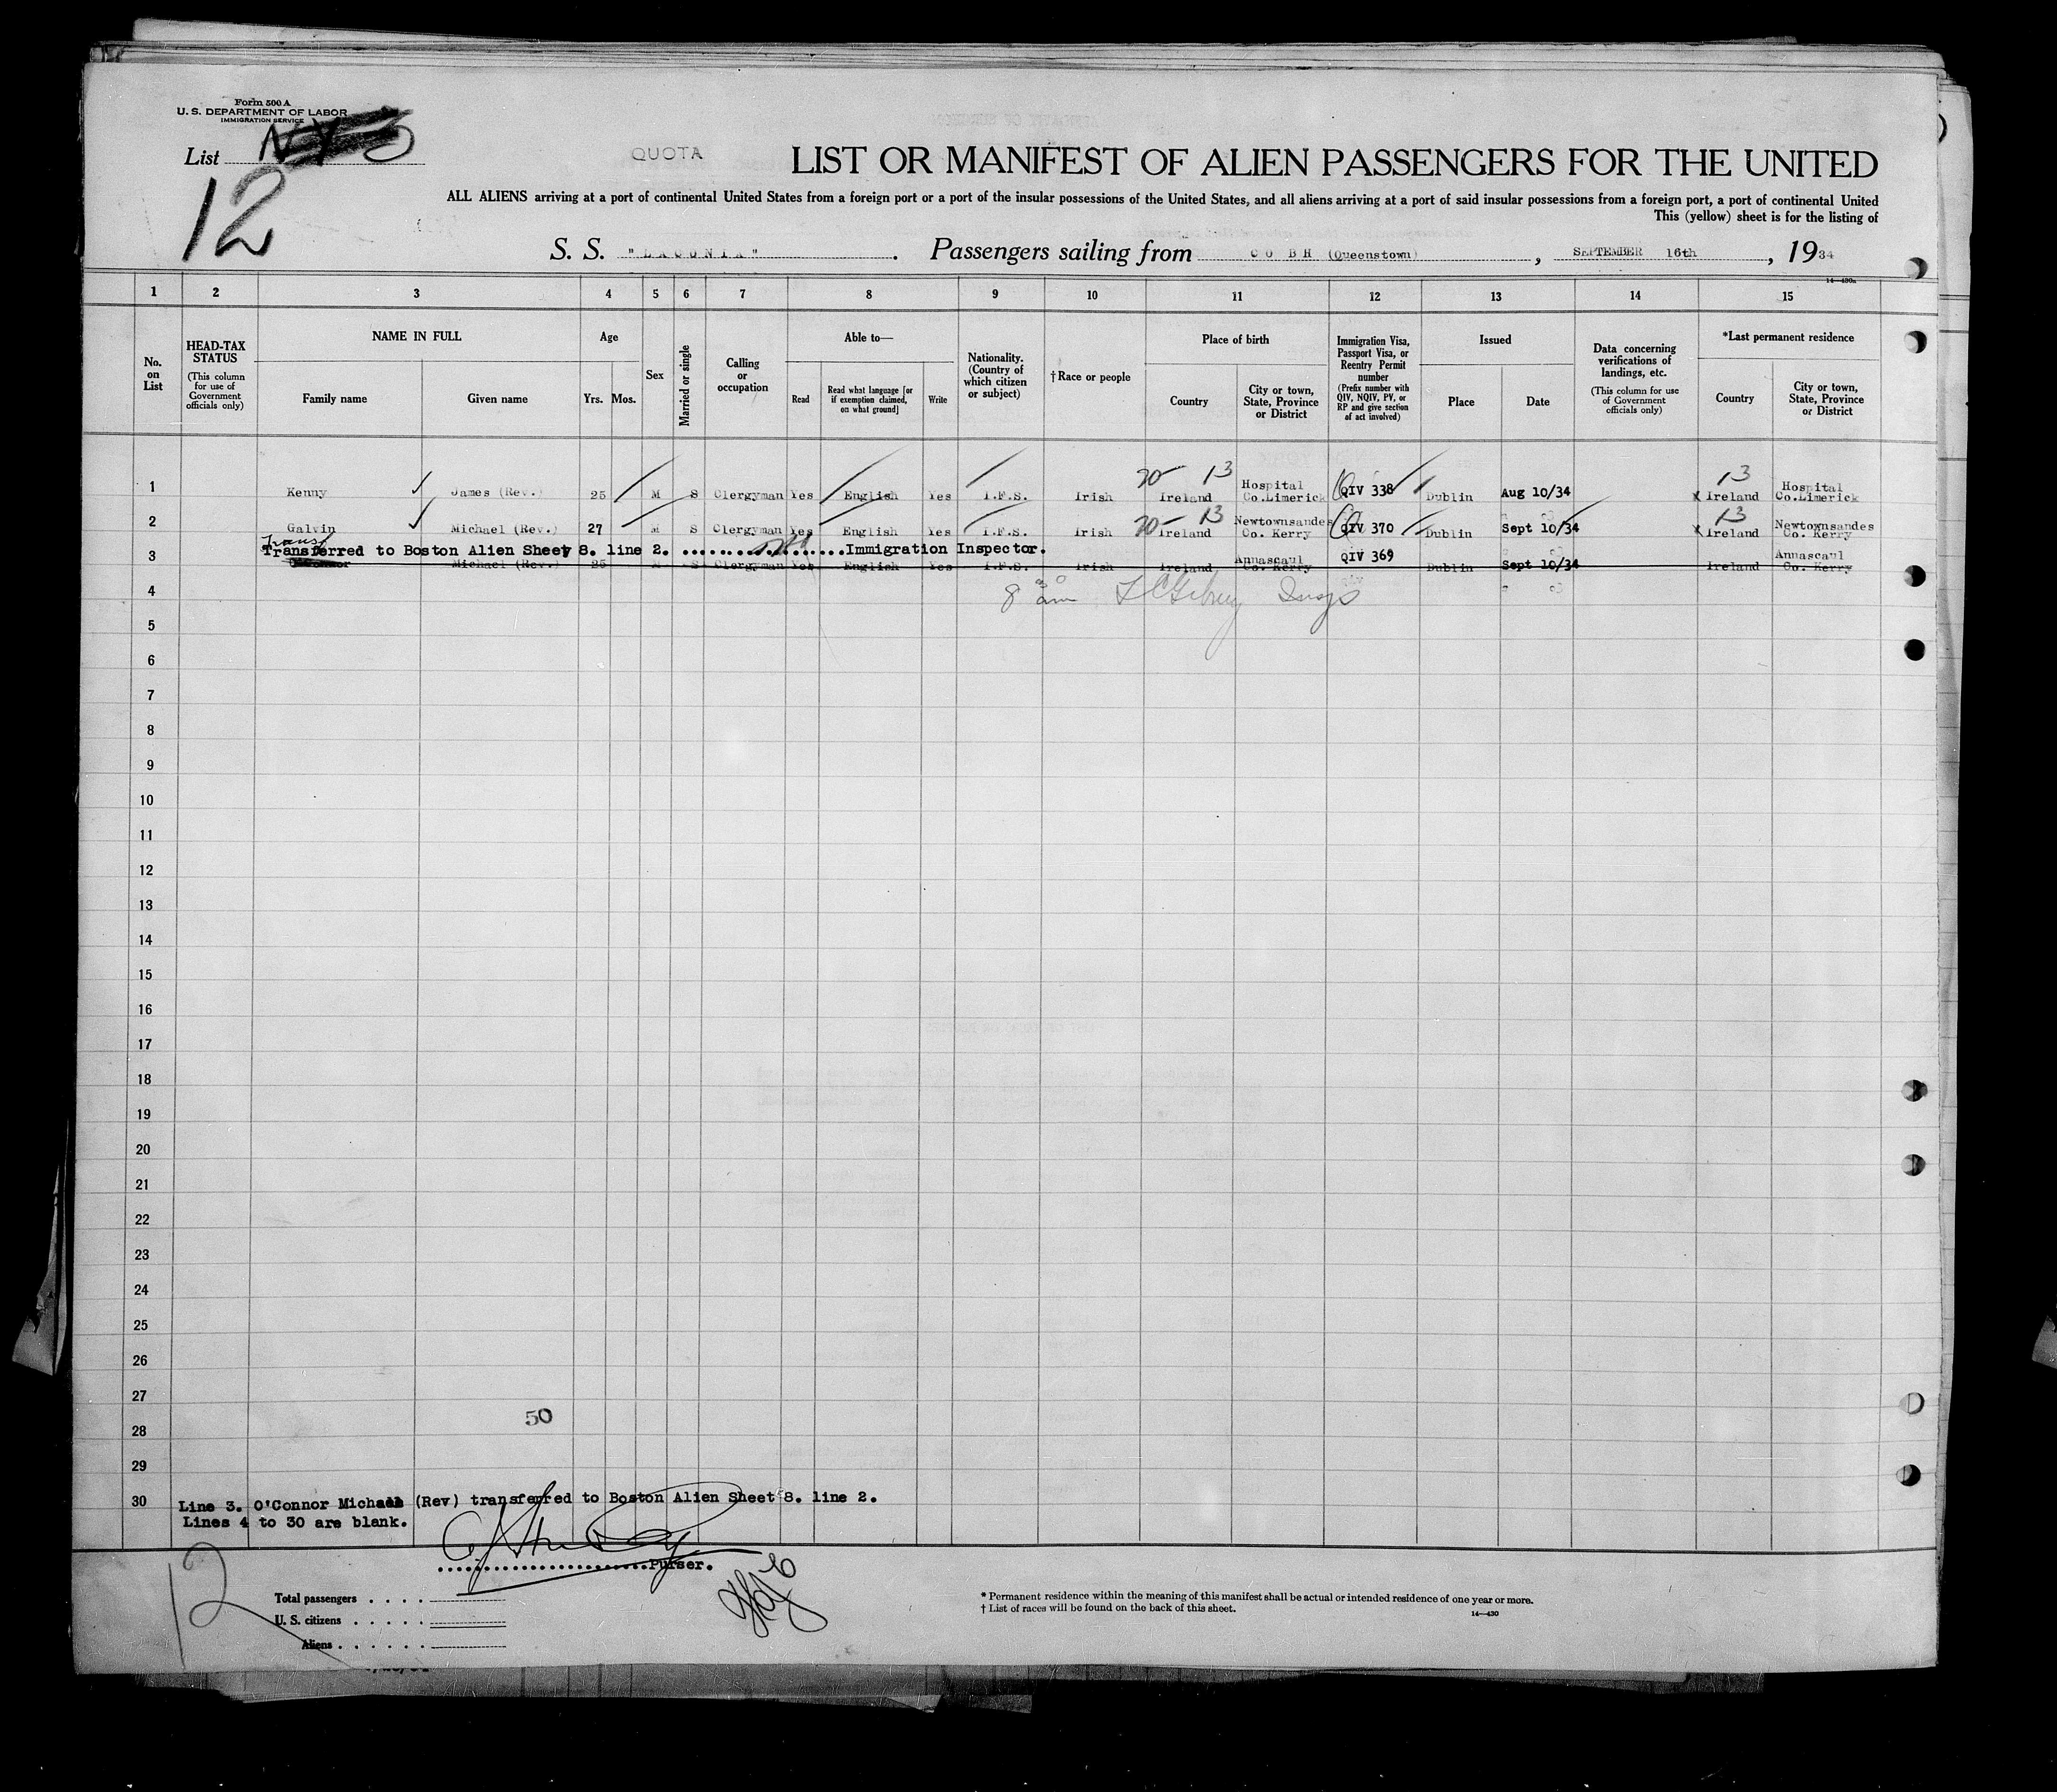 Form 500 A
U. S. DEPARTMENT OF LABOR
IMMIGRATION SERVICE
List NY 3
12
QUOTA
LIST OR MANIFEST OF ALIEN PASSENGERS FOR THE UNITED
ALL ALIENS arriving at a port of continental United States from a foreign port or a port of the insular possessions of the United States, and all aliens arriving at a port of said insular possessions from a foreign port, a port of continental United
This (yellow) sheet is for the listing of
S. S. "LACONIA". Passengers sailing from COBH (Queenstown), SEPTEMBER 16th, 1934
14—430a
1 2 3 4 5 6 7 8 9 10 11 12 13 14 15
No. on List
HEAD-TAX STATUS
(This column for use of Government officials only)
NAME IN FULL
Family name Given name
Age
Yrs. Mos.
Sex
Married or single
Calling or occupation
Able to—
Read
Read what language [or if exemption claimed, on what ground]
Write
Nationality. (Country of which citizen or subject)
†Race or people
Place of birth
Country
City or town, State, Province or District
Immigration Visa, Passport Visa, or Reentry Permit number
(Prefix number with QIV, NQIV, PV, or RP and give section of act involved)
Issued
Place Date
Data concerning verifications of landings, etc.
(This column for use of Government officials only)
*Last permanent residence
Country
City or town, State, Province or District
13 13
1 Kenny James (Rev.) 25 M S Clergyman Yes English Yes I.F.S. Irish Ireland Hospital Co.Limerick QIV 338 Dublin Aug 10/34 x Ireland Hospital Co.Limerick
13 13
2 Galvin Michael (Rev.) 27 M S Clergyman Yes English Yes I.F.S. Irish Ireland Newtownsandes Co. Kerry QIV 370 Dublin Sept 10/34 x Ireland Newtownsandes Co. Kerry
Trans
Transferred to Boston Alien Sheet 8. line 2. ....................Immigration Inspector.
3 O'Connor Michael (Rev.) 25 M S Clergyman Yes English Yes I.F.S. Irish Ireland Annascaul Co. Kerry QIV 369 Dublin Sept 10/34 Ireland Annascaul Co. Kerry
4
5
6
7
8
9
10
11
12
13
14
15
16
17
18
19
20
21
22
23
24
25
26
27
50
28
29
30
Line 3. O'Connor Michael (Rev) transferred to Boston Alien Sheet 8. line 2.
Lines 4 to 30 are blank.
.........................Purser.
12
Total passengers . . . .
U. S. citizens . . . . .
Aliens . . . . . .
* Permanent residence within the meaning of this manifest shall be actual or intended residence of one year or more.
† List of races will be found on the back of this sheet.
14—430